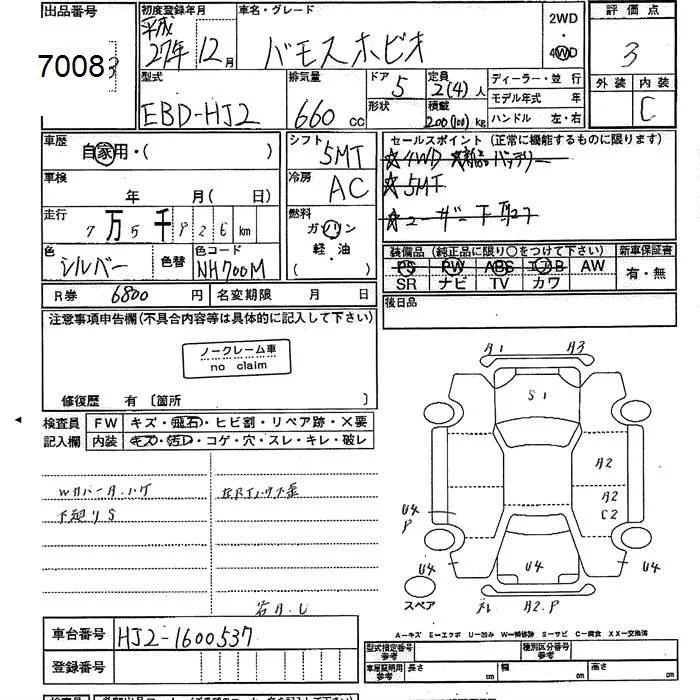 出品番号
70083
初度登録年月
平成
27年 12月
車名・グレード
バモスホビオ
2WD
・
4WD
評価点
3
外装 内装
C
型式
EBD-HJ2
排気量
660 CC
ドア
5
形状
定員
2(4)人
積載
200(100)kg
ディーラー・並 行
モデル年式 年
ハンドル 左・右
車歴
自家用・( )
車検
年 月(日)
走行
7万5千926km
色
シルバー
色替
色コード
NH700M
シフト
5MT
冷房
AC
燃料
ガソリン
軽・油
( )
セールスポイント(正常に機能するものに限ります)
☆4WD ☆新品バッテリー
☆5MT
☆ユーザー下取
装備品(純正品に限り○をつけて下さい)
PS PW ABS エアB AW
SR ナビ TV カワ
新車保証書
有・無
R券 6800 円
名変期限 月 日
後日品
注意事項申告欄(不具合内容等は具体的に記入して下さい)
ノークレーム車
no claim
修復歴 有〔箇所 〕
検査員
記入欄
FW キズ・飛石・ヒビ割・リペア跡・×要
内装 キズ・汚レ・コゲ・穴・スレ・キレ・破レ
Wカバー A.ハゲ
下廻りS
A1 A3
S1
A2
A2
C2
U4
P
U4
U4
U4
スペア
A2.P
A−キズ E−エクボ U−凹み W−補修跡 S−サビ C−腐食 XX−交換済
車台番号
HJ2-1600537
登録番号
型式指定番号
参考
種別区分番号
参考
車庫証明用
参考
長さ 幅 高さ